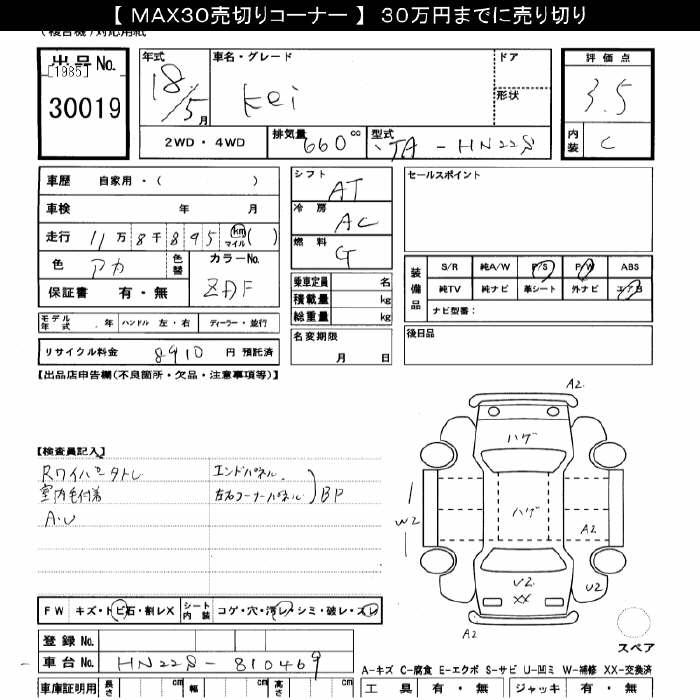 【 MAX30売切りコーナー 】 30万円までに売り切り
出品No.
[1985]
30019
年式
18/5月
車名・グレード
Kei
ドア
形状
評価点
3.5
内装
C
2WD・4WD
排気量
660 cc
型式
TA - HN22S
車歴 自家用・( )
車検 年 月
走行 11万8千895 km マイル ( )
色 アカ
色替
カラーNo.
ZDF
保証書 有・無
シフト
AT
冷房
AC
燃料
G
乗車定員 名
積載量 kg
総重量 kg
名変期限
月 日
セールスポイント
装備品
S/R 純A/W P/S P/W ABS
純TV 純ナビ 革シート 外ナビ エアB
ナビ型番:
後日品
モデル年式 . 年 ハンドル 左・右 ディーラー・並行
リサイクル料金 8910 円 預託済
【出品店申告欄(不良箇所・欠品・注意事項等)】
【検査員記入】
Rワイパータトレ
エンドパネル
室内毛付着
左右コーナーパネル
BP
A・U
A2
ハゲ
ハゲ
W2
A2
U2
XX
U2
A2
スペア
FW キズ・トビ石・割レX
シート内装 コゲ・穴・汚レ・シミ・破レ・スレ
登録 No.
車台 No. HN22S-810469
A-キズ C-腐食 E-エクボ S-サビ U-凹ミ W-補修 XX-交換済
車庫証明用 長さ cm 幅 cm 高さ cm
工具 有・無 ジャッキ 有・無